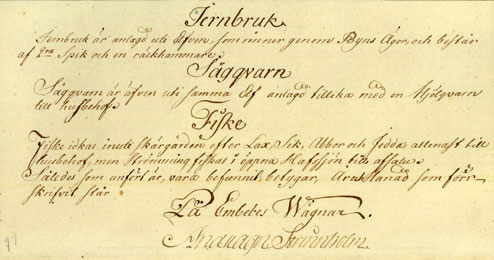 Jernbruk
Jernbruk är anlagd uti Elfven, som rinner genom Byns Ägor, och består
af 2ne Spik och en räckhammare.
Sågqvarn
Sågqvarn är äfven uti samma Elf anlagd tillika med en Mjölqvarn
till husbehof.
Fiske
Fiske idkas inuti skärgården efter Lax, Sik, Abbor och Jädda allenast till
husbehof, men Strömming fiskas i öppna Hafssjön till afsalu.
Således som anfört är, vara befunnit, betygar, År och Månad som förr-
skrifvit står.
På Embetes Wägnar.
Strinnholm